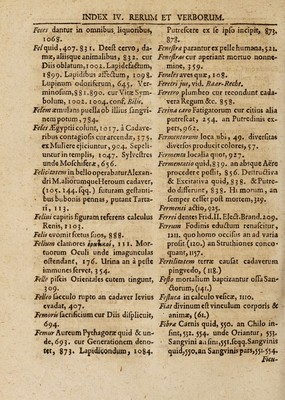 INDEX IV. RERUM ET VERBORUM.
Fetor dantur in omnibus liquoribus,
1068.
Fel quid, 407. 831. Deest cervo, da-
mæ, aliisque animalibus, 832. cur
Diis oblatum, 1002. Lapidefactum,
1899. Lapidibus affectum, 1098.
Lupinum odoriferum, 645. Ver-
minosum, 881. 890. cur Vitæ Sym-
bolum, 1002. 1004. conf. Bilis.
Felem æmulans puella ob illius sangvi-
nem potum, 784.
Feles Ægyptii colunt, 1017. à Cadave-
ribus contagiosis cur arcendæ, 775.
ex Muliere ejiciuntur, 904. Sepeli-
uncur in templis, 1047. Sylvestres
unde Moschiferæ, 656.
Felicitatem in bello operabatur Alexan-
dri M. aliorumque Heroum cadaver,
(105. 144. sqq.) fixuram gestanti-
bus bubonis pennas, putant Tarta-
ri, 113.
Felini capitis figuram referens calculus
Renis, 1103.
Felis ex omit fœtus suos, 888.
Felium clamores 111. Mor-
tuorum Oculi unde imagunculas
ostendant, 176. Urina an à peste
immunes servet, 354.
Felle piscis Orientales cutem tingunt,
309.
Fellio sacculo rupto an cadaver levius
evadat, 407.
Femoris sacrificium cur Diis displicuit,
694.
Femur Aureum Pythagoræ quid & un-
de, 691. cur Generationem deno-
tet, 873. Lapidicondum, 1084.
Putrescere ex se ipso incipit, 873.
878.
Fenestra parantur ex pelle humana, 521.
Fenestras cur aperiant mortuo nonne-
mine, 359.
Ferales aves quæ, 108.
Feretri jus, vid. Baar-Recht.
Feretro plumbeo cur recondunt cada-
vera Regum &c. 858.
Ferina caro Fatigatorum cur citius alia
putrescat, 254. an Putredinis ex-
pers, 962.
Fermentorum loca ubi, 49. diversitas
diversos producit colores, 57.
Fermenta localia quot, 927.
Fermentatio quid, 839. an absque Aëre
procedere possit, 856. Destructiva
& Excitativa quid, 838. & Putre-
do differunt, 838. Hi morum, an
semper cesset post mortem, 319.
Ferri odor Martialis, 201.
Ferrei dentes Frid. II. Elect. Brand. 209.
Ferrum Fodinis eductum renascitur,
1211. quo homo occisus an ad varia
prosit (120.) an Struthiones conco-
quant, 1157.
Fertilitatem terræ causat cadaverum
pingvedo, (118.)
Festo mortalium baptizantur ossa San-
ctorum, (141.)
Festuca in calculo vesicæ, 1110.
Fiat divinum est vinculum corporis &
animæ, (61.)
Fibra Carnis quid, 550. an Chilo in-
sint, 531. 554. unde Oriantur, 553.
Sangvini an insint, 551. seqq. Sangvinis
quid, 550. an Sangvinis pars, 553. 554.
Ficu-